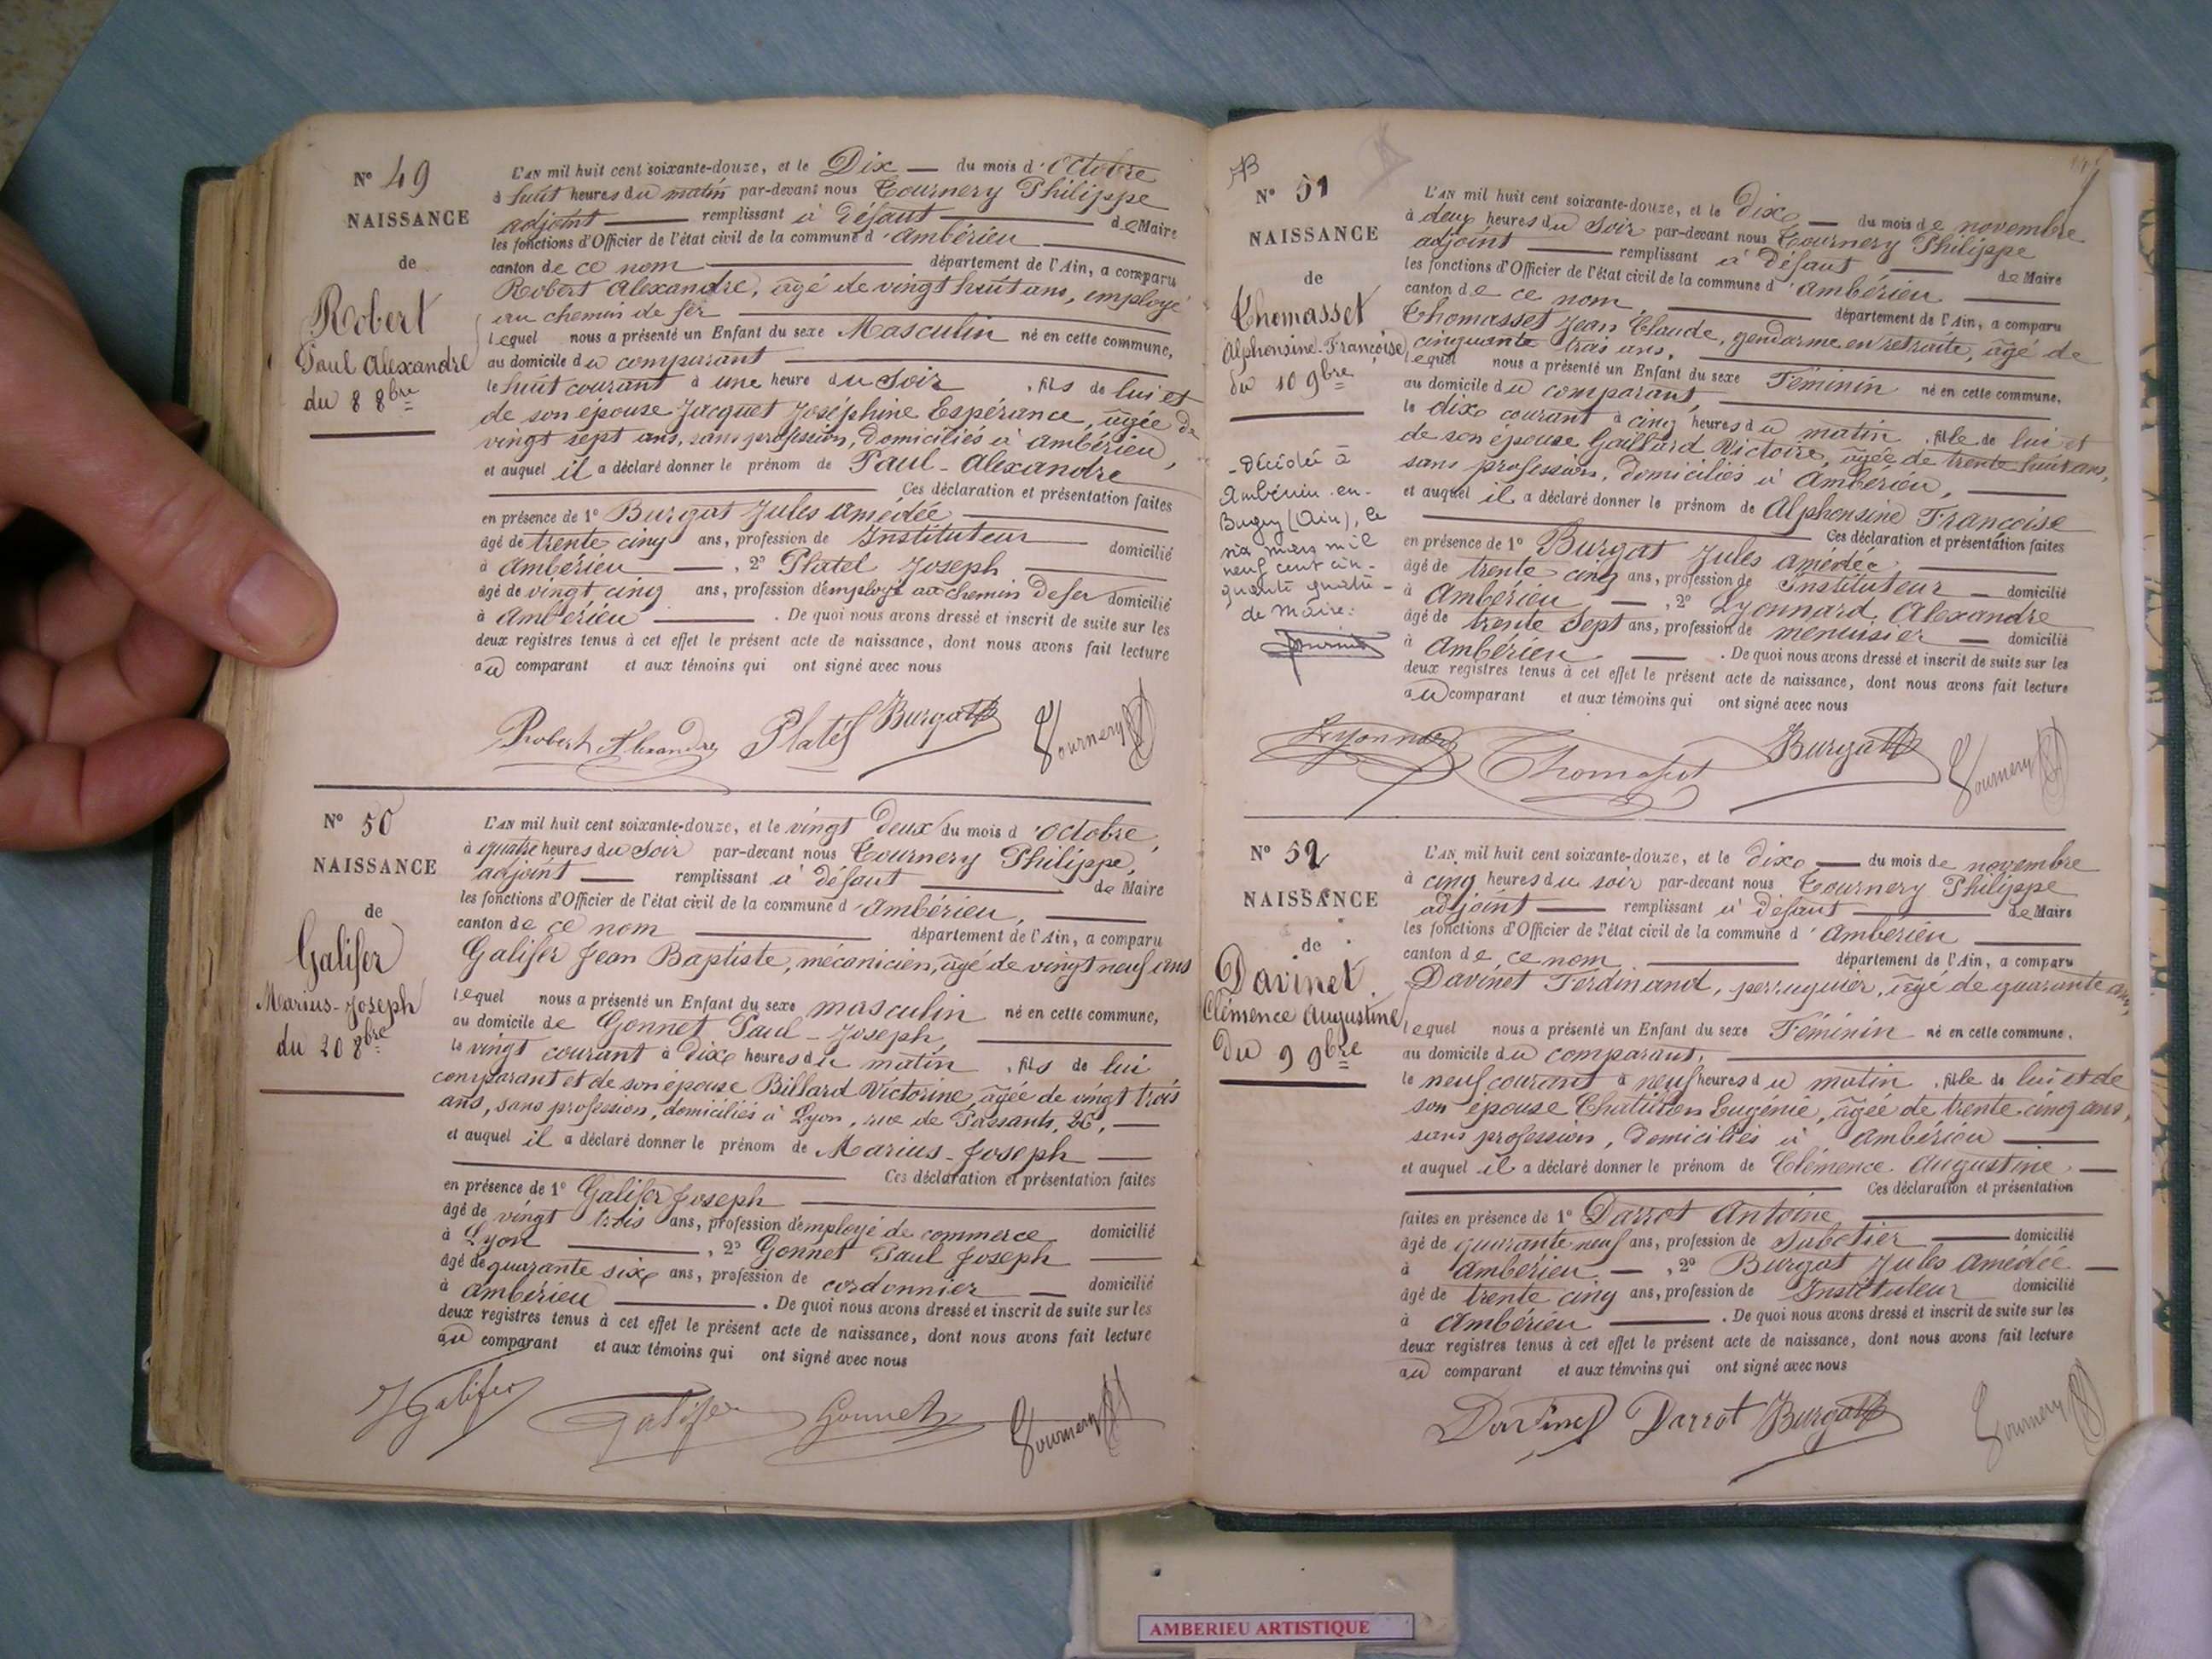 N° 49
NAISSANCE
de
Robert
Paul Alexandre
du 8 8bre
L'AN mil huit cent soixante-douze, et le Dix — du mois d'Octobre
à huit heures du matin par-devant nous Tournery Philippe
adjoint — remplissant à défaut — de Maire
les fonctions d'Officier de l'état civil de la commune d'Ambérieu
canton de ce nom — département de l'Ain, a comparu
Robert Alexandre, âgé de vingt huit ans, employé
au chemin de fer
lequel nous a présenté un Enfant du sexe Masculin né en cette commune,
au domicile du comparant
le huit courant à une heure du soir, fils de lui et
de son épouse Jacquet Joséphine Espérance, âgée de
vingt sept ans, sans profession, domiciliés à Ambérieu,
et auquel il a déclaré donner le prénom de Paul-Alexandre
Ces déclaration et présentation faites
en présence de 1° Burgat Jules Amédée
âgé de trente cinq ans, profession de Instituteur domicilié
à Ambérieu —, 2° Platel Joseph
âgé de vingt cinq ans, profession d'employé au chemin de fer domicilié
à Ambérieu —. De quoi nous avons dressé et inscrit de suite sur les
deux registres tenus à cet effet le présent acte de naissance, dont nous avons fait lecture
au comparant et aux témoins qui ont signé avec nous
Robert Alexandre Platel Burgat Tournery
N° 50
NAISSANCE
de
Galifer
Marius-Joseph
du 20 8bre
L'AN mil huit cent soixante-douze, et le vingt deux du mois d'Octobre,
à quatre heures du soir par-devant nous Tournery Philippe,
adjoint — remplissant à défaut — de Maire
les fonctions d'Officier de l'état civil de la commune d'Ambérieu,
canton de ce nom — département de l'Ain, a comparu
Galifer Jean Baptiste, mécanicien, âgé de vingt neuf ans
lequel nous a présenté un Enfant du sexe masculin né en cette commune,
au domicile de Gonnet Paul-Joseph,
le vingt courant à dix heures du matin, fils de lui
comparant et de son épouse Billard Victorine, âgée de vingt trois
ans, sans profession, domiciliés à Lyon, rue de Passants, 26, —
et auquel il a déclaré donner le prénom de Marius-Joseph —
Ces déclaration et présentation faites
en présence de 1° Galifer Joseph
âgé de vingt trois ans, profession d'employé de commerce domicilié
à Lyon —, 2° Gonnet Paul Joseph
âgé de quarante six ans, profession de cordonnier — domicilié
à Ambérieu —. De quoi nous avons dressé et inscrit de suite sur les
deux registres tenus à cet effet le présent acte de naissance, dont nous avons fait lecture
au comparant et aux témoins qui ont signé avec nous
J Galifer Galifer Gonnet Tournery
N° 51
NAISSANCE
de
Thomasset
Alphonsine-Françoise
du 10 9bre
-Décédée à
Ambérieu-en-
Bugey (Ain), le
six mars mil
neuf cent cin-
quante quatre-
de Maire:
L'AN mil huit cent soixante-douze, et le dix — du mois de novembre
à deux heures du soir par-devant nous Tournery Philippe
adjoint — remplissant à défaut — de Maire
les fonctions d'Officier de l'état civil de la commune d'Ambérieu
canton de ce nom — département de l'Ain, a comparu
Thomasset Jean Claude, gendarme en retraite, âgé de
cinquante trois ans,
lequel nous a présenté un Enfant du sexe Féminin né en cette commune,
au domicile du comparant,
le dix courant à cinq heures du matin, fille de lui et
de son épouse Gaillard Victoire, âgée de trente huit ans,
sans profession, domiciliés à Ambérieu,
et auquel il a déclaré donner le prénom de Alphonsine Françoise
Ces déclaration et présentation faites
en présence de 1° Burgat Jules Amédée
âgé de trente cinq ans, profession de Instituteur — domicilié
à Ambérieu —, 2° Lyonnard Alexandre
âgé de trente sept ans, profession de menuisier — domicilié
à Ambérieu —. De quoi nous avons dressé et inscrit de suite sur les
deux registres tenus à cet effet le présent acte de naissance, dont nous avons fait lecture
au comparant et aux témoins qui ont signé avec nous
Lyonnard Thomasset Burgat Tournery
N° 52
NAISSANCE
de
Davinet
Clémence Augustine
du 9 9bre
L'AN mil huit cent soixante-douze, et le dix — du mois de novembre
à cinq heures du soir par-devant nous Tournery Philippe
adjoint — remplissant à défaut — de Maire
les fonctions d'Officier de l'état civil de la commune d'Ambérieu
canton de ce nom — département de l'Ain, a comparu
Davinet Ferdinand, perruquier, âgé de quarante ans,
lequel nous a présenté un Enfant du sexe Féminin né en cette commune,
au domicile du comparant,
le neuf courant à neuf heures du matin, fille de lui et de
son épouse Chatillon Eugénie, âgée de trente cinq ans,
sans profession, domiciliés à Ambérieu
et auquel il a déclaré donner le prénom de Clémence Augustine —
Ces déclaration et présentation
faites en présence de 1° Darrot Antoine
âgé de quarante neuf ans, profession de Sabotier — domicilié
à Ambérieu —, 2° Burgat Jules Amédée —
âgé de trente cinq ans, profession de Instituteur domicilié
à Ambérieu —. De quoi nous avons dressé et inscrit de suite sur les
deux registres tenus à cet effet le présent acte de naissance, dont nous avons fait lecture
au comparant et aux témoins qui ont signé avec nous
Davinet Darrot Burgat Tournery
AMBERIEU ARTISTIQUE